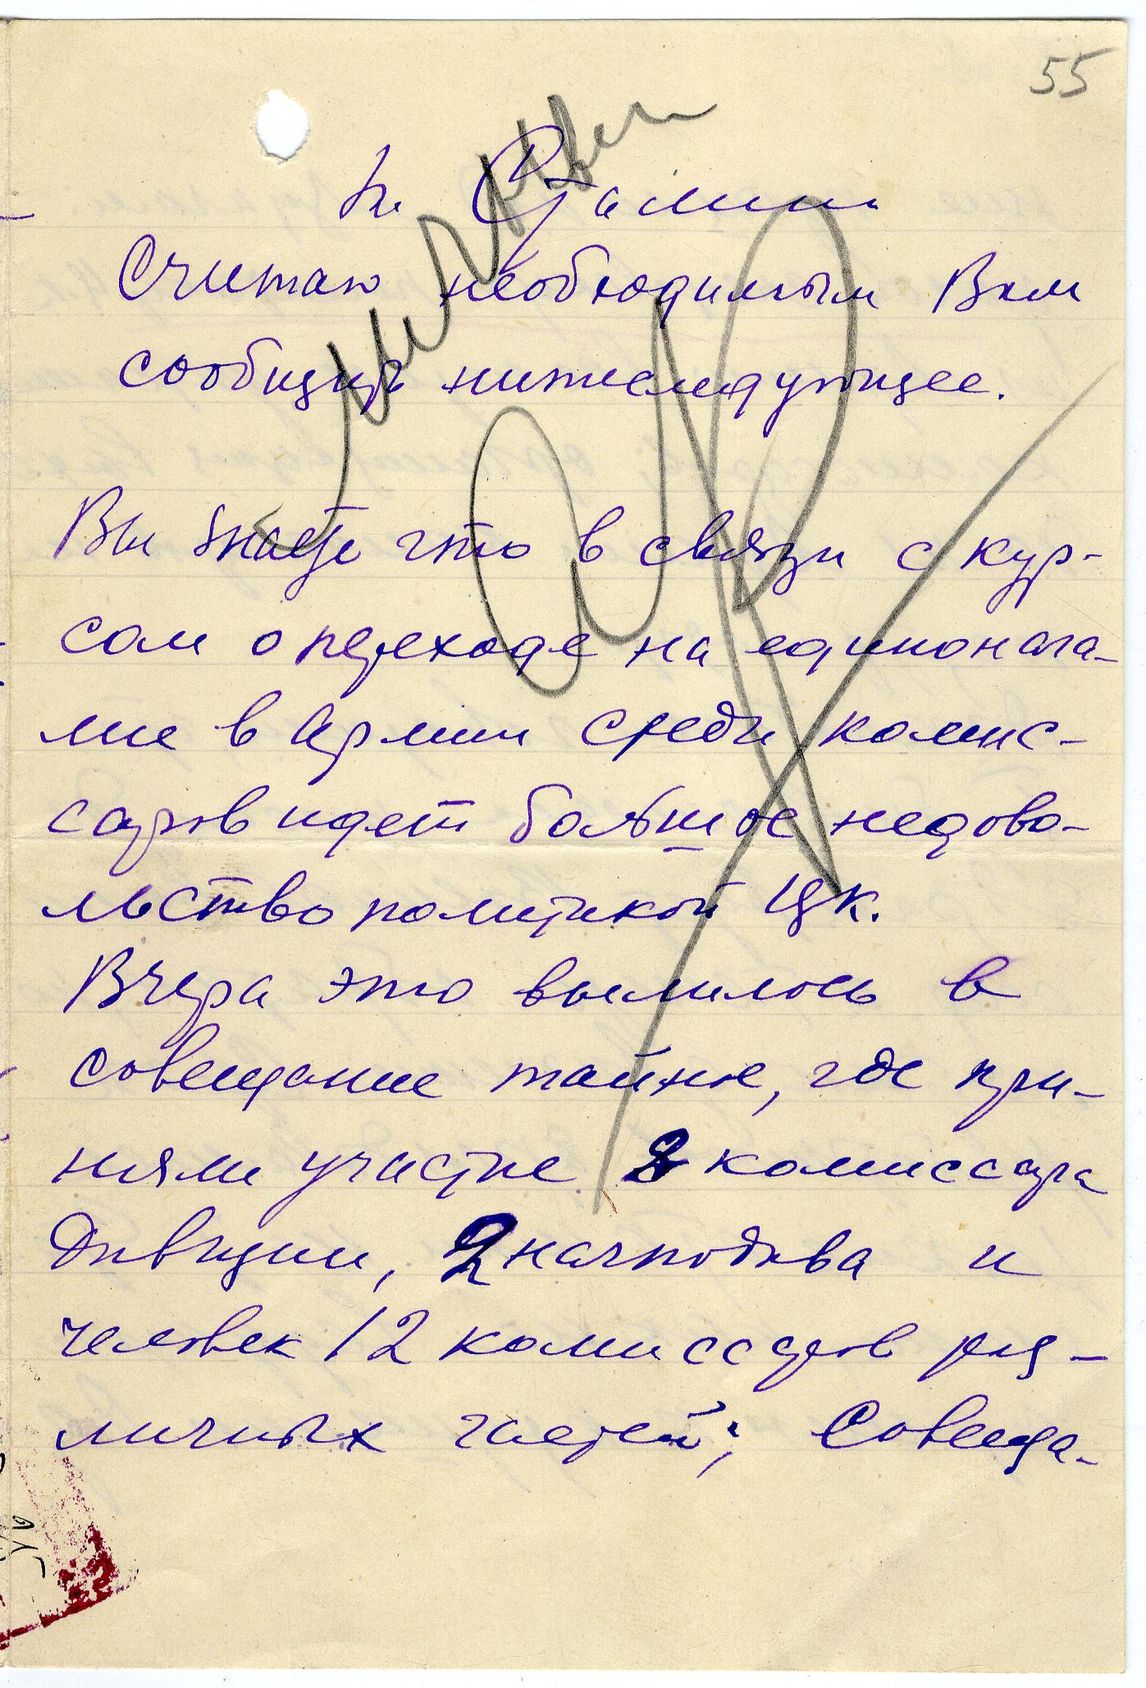 55
т. Сталин
Считаю необходимым Вам
сообщить нижеследующее.
Вы знаете что в связи с кур-
сом о переходе на единонача-
лие в армии среди комис-
саров идет большое недово-
льство политикой ЦК.
Вчера это вылилось в
совещание тайное, где при-
няли участие 2 комиссара
Дивизии, 2 начподива и
человек 12 комиссаров раз-
личных частей; Совеща-